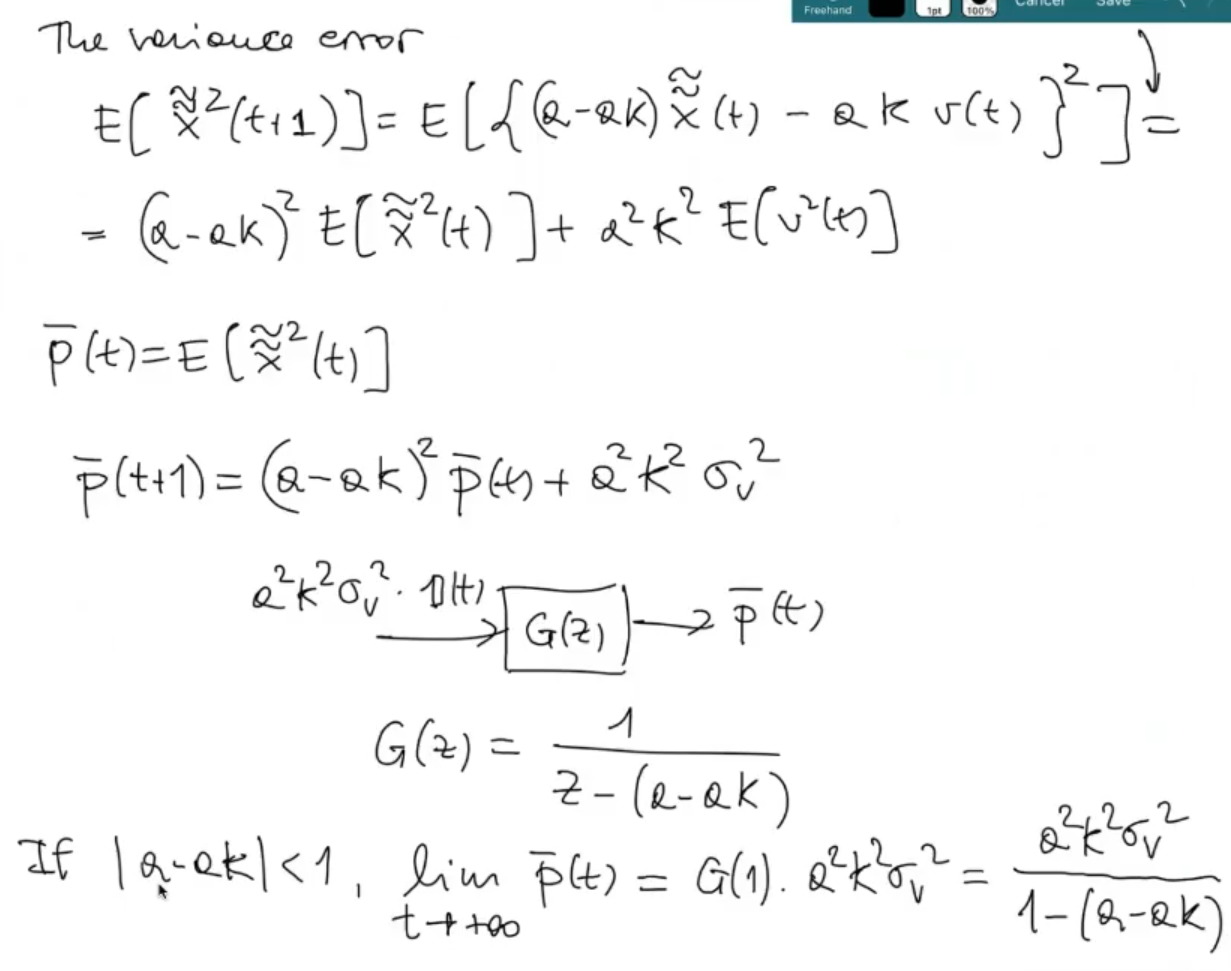 Freehand 1pt 100% Cancel Save
The variance error
E[x̃̃²(t+1)] = E[{(a-ak)x̃̃(t) - ak v(t)}²] =
= (a-ak)² E[x̃̃²(t)] + a²k² E[v²(t)]
p̄(t) = E[x̃̃²(t)]
p̄(t+1) = (a-ak)² p̄(t) + a²k² σᵥ²
a²k²σᵥ² · 1(t) → G(z) → p̄(t)
G(z) = 1 / (z - (a-ak))
If |a-ak| < 1, lim t→+∞ p̄(t) = G(1) · a²k²σᵥ² = a²k²σᵥ² / (1-(a-ak))